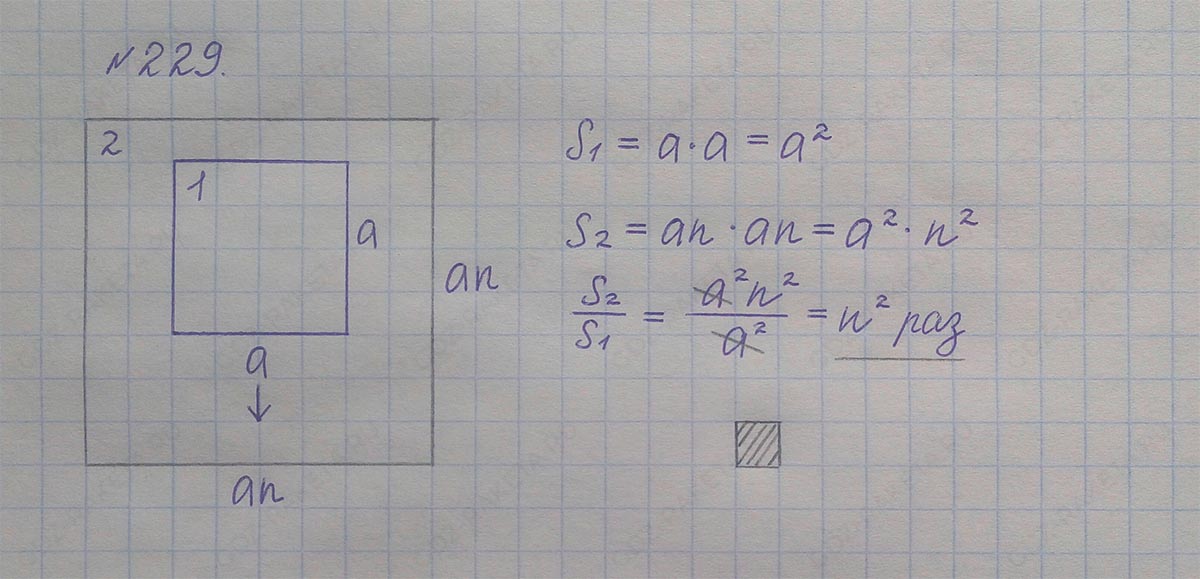 №229.
2
1
a
an
a
an
S₁ = a·a = a²
S₂ = an·an = a²·n²
S₂/S₁ = a²n²/a² = n² раз